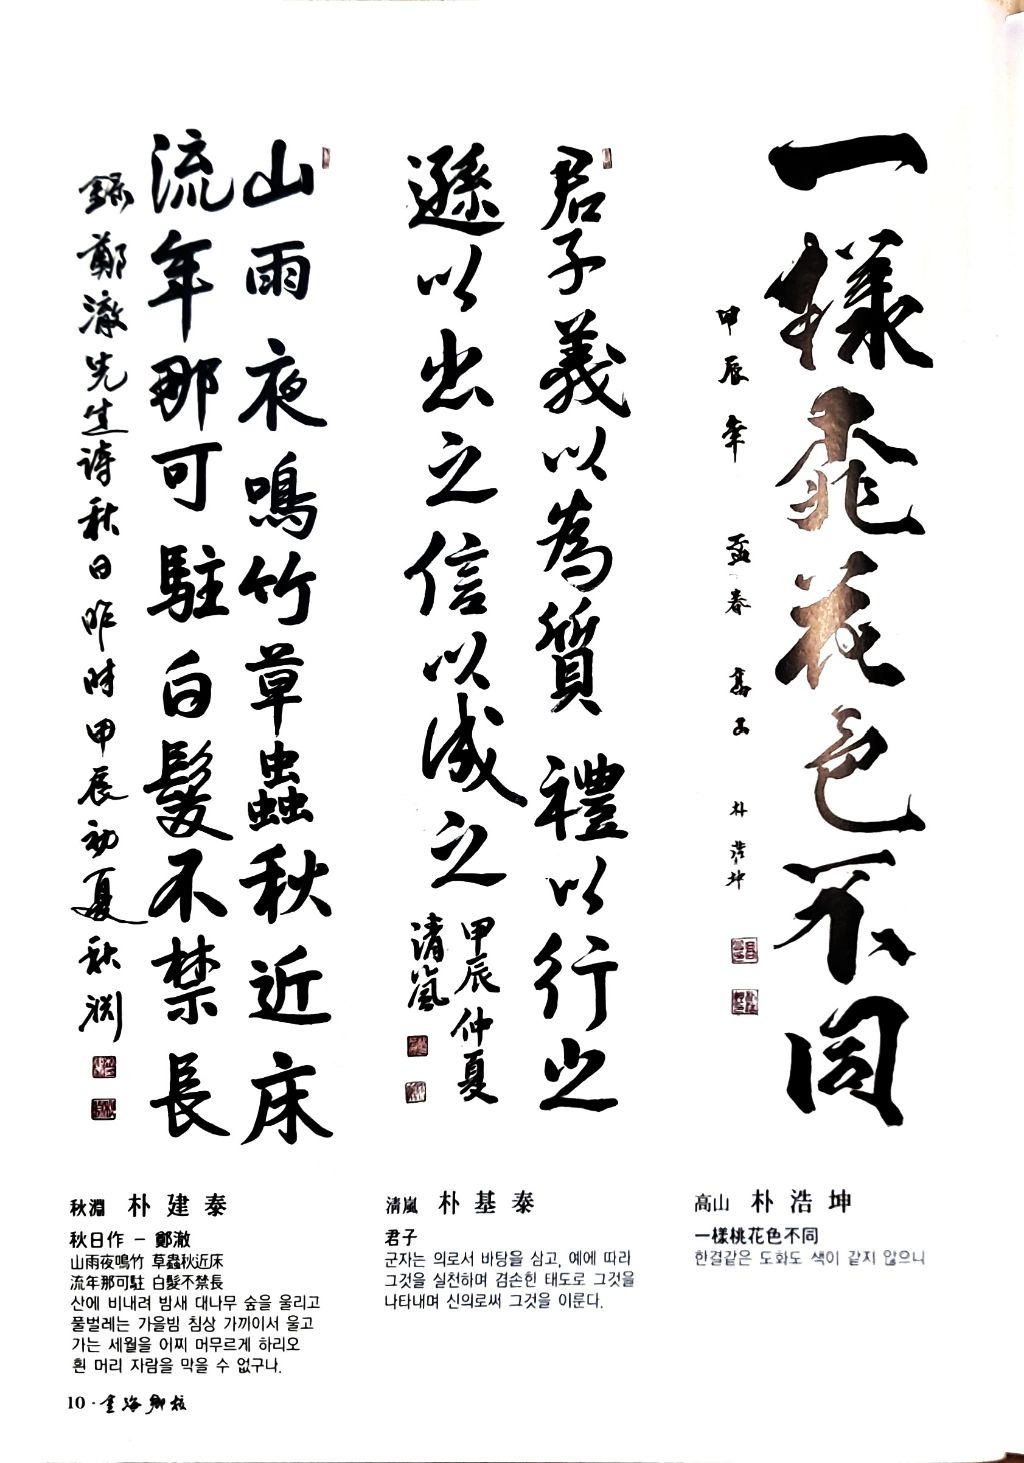 一樣桃花色不同
甲辰年 孟春 高山 朴浩坤
君子義以為質 禮以行之
遜以出之信以成之
甲辰仲夏
清嵐
山雨夜鳴竹草蟲秋近床
流年那可駐白髮不禁長
錄鄭澈先生詩秋日作時甲辰初夏秋淵
秋淵 朴建泰
秋日作 - 鄭澈
山雨夜鳴竹 草蟲秋近床
流年那可駐 白髮不禁長
산에 비내려 밤새 대나무 숲을 울리고
풀벌레는 가을빔 침상 가까이서 울고
가는 세월을 어찌 머무르게 하리오
흰 머리 자람을 막을 수 없구나.
清嵐 朴基泰
君子
군자는 의로서 바탕을 삼고, 예에 따라
그것을 실천하며 겸손힌 태도로 그것을
나타내며 신의로써 그것을 이룬다.
高山 朴浩坤
一樣桃花色不同
한결같은 도화도 색이 같지 않으니
10 · 金海鄕校